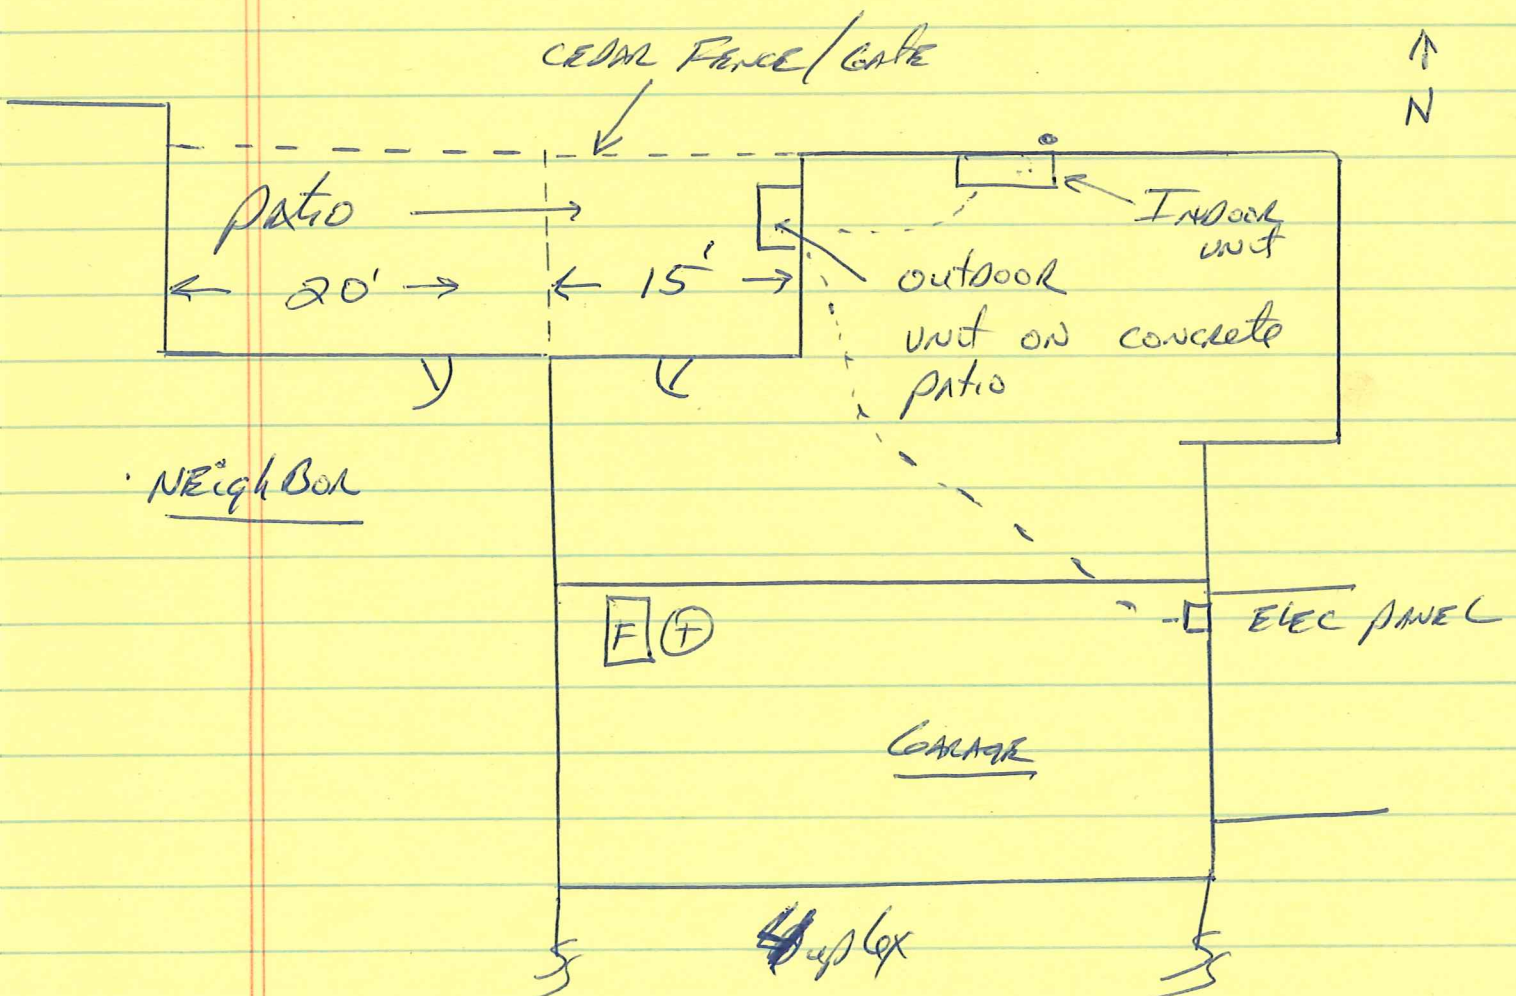 CEDAR FENCE/GATE
N
PATIO
20'
15'
INDOOR
UNIT
OUTDOOR
UNIT ON CONCRETE
PATIO
NEIGHBOR
F
T
ELEC PANEL
GARAGE
4uplex